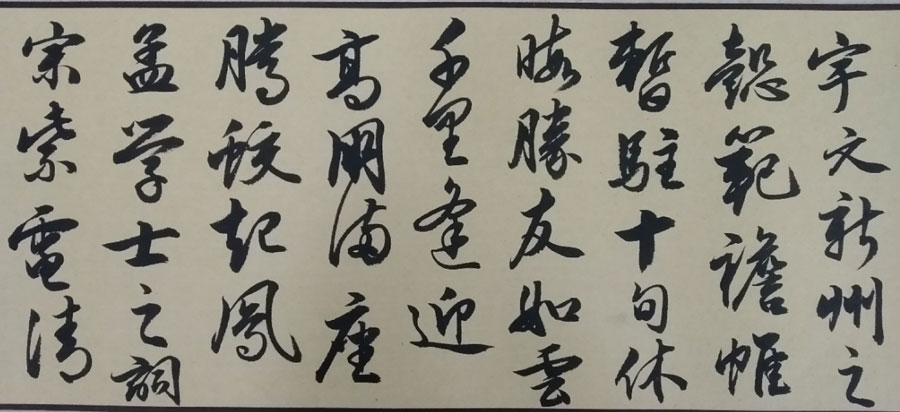 宇文新州之
懿範襜帷
暫駐十旬休
暇勝友如雲
千里逢迎
高朋滿座
騰蛟起鳳
孟学士之詞
宗紫電清